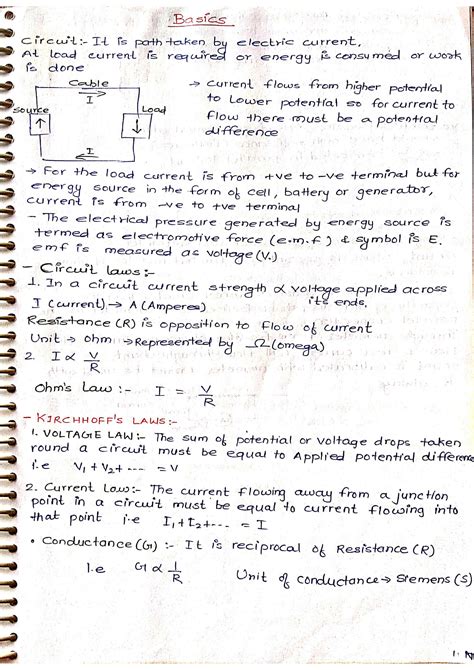 Basics
Circuit:- It is path taken by electric current,
At load current is required or energy is consumed or work
is done
Cable
I
Source
Load
I
→ Current flows from higher potential
to Lower potential so for current to
flow there must be a potential
difference
→ For the load current is from +ve to -ve terminal but for
energy source in the form of cell, battery or generator,
current is from -ve to +ve terminal
- The electrical pressure generated by energy source is
termed as electromotive force (e.m.f) & symbol is E.
emf is measured as voltage (V.)
- Circuit laws:-
1. In a circuit current strength ∝ voltage applied across
its ends.
I (current) → A (Amperes)
Resistance (R) is opposition to flow of current
Unit → ohm → Represented by Ω (omega)
2. I ∝ V/R
Ohm's Law :- I = V/R
- KIRCHHOFF'S LAWS:-
1. VOLTAGE LAW:- The sum of potential or voltage drops taken
round a circuit must be equal to Applied potential difference
i.e V₁ + V₂ + --- = V
2. Current Law:- The current flowing away from a junction
point in a circuit must be equal to current flowing into
that point i.e I₁ + I₂ + --- = I
• Conductance (G) :- It is reciprocal of Resistance (R)
I.e G ∝ 1/R Unit of conductance → Siemens (S)